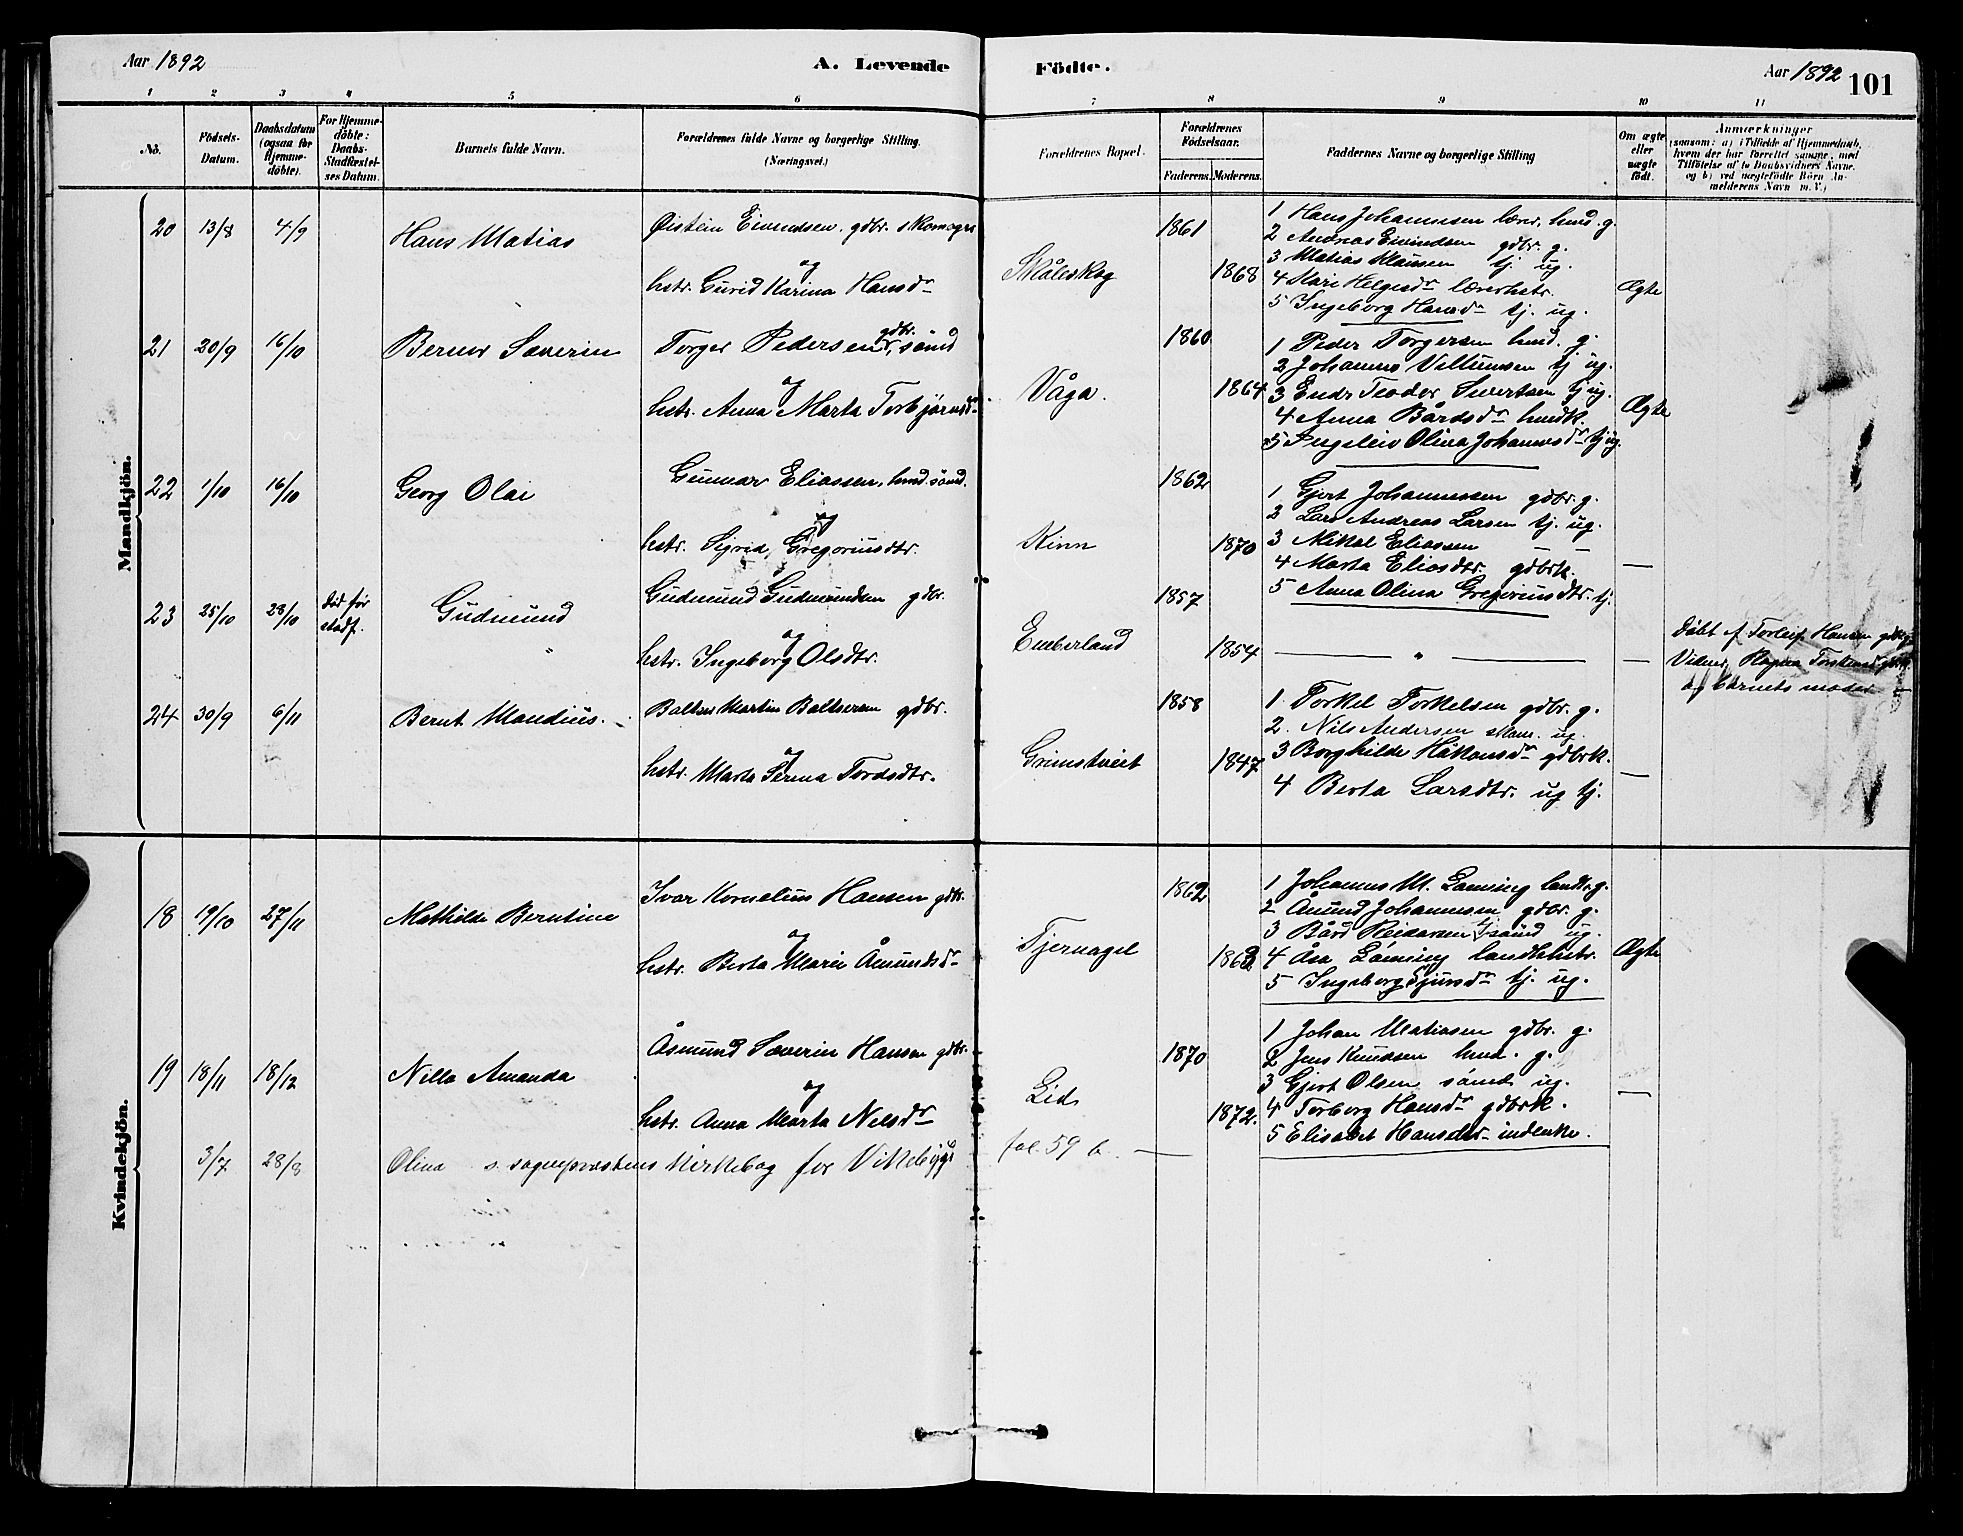 Aar 1892 A. Levende Födte. Aar 1892 101
1 2 3 4 5 6 7 8 9 10 11
No. Födsels-Datum. Daabsdatum (ogsaa for Hjemme-döbte). For Hjemme-döbte: Daabs-Stadfæstel-ses Datum. Barnets fulde Navn. Forældrenes fulde Navne og borgerlige Stilling. (Næringsvei.) Forældrenes Bopæl. Forældrenes Födselsaar. Faderens. Moderens. Faddernes Navne og borgerlige Stilling Om ægte eller uægte födt. Anmærkninger (saasom: a) i Tilfælde af Hjemmedaab, hvem der har forrettet samme, med Tilföielse af to Daabsvidners Navne, og b) ved uægtefödte Börn An-melderens Navn m. V.)
Mandkjön.
20 13/8 4/9 Hans Matias Øistein Eivindsen, gdbr. skomager
og
hstr. Gurid Karina Hansdr
Skålevkog 1861 1868
1 Hans Johannesen lærer, hmd. g.
2 Andreas Eivindsen gdbr. g.
3 Matias Klausen tj. ug.
4 Kari Helgesdr lærerhstr.
5 Ingeborg Hansdr tj. ug.
Ægte
21 20/9 16/10 Berner Severin Torger Pedersen, gdbr. sömd
og
hstr. Anna Marta Torbjörnsdr.
Våga. 1860 1864
1 Peder Torgersen hmd. g.
2 Johannes Villumsen tj ug.
3 Endr Teodor Sivertsen tj ug.
4 Anna Bårdsdr hmdk.
5 Ingeleiv Olina Johannesdr. tj ug.
Ægte
22 1/10 16/10 Georg Olai Gunnar Eliassen, hmd. sömd.
og
hstr. Sigrid Gregoriusdtr.
Kinn 1862 1870
1 Gjert Johannessen gdbr. g.
2 Lars Andreas Larsen tj. ug.
3 Mikal Eliassen — —
4 Marta Eliasdtr. gdbrk.
5 Anna Olina Gregoriusdtr. tj.
—
23 25/10 28/10 död för stadf. Gudmund Gudmund Gudmundsen gdbr.
og
hstr. Ingeborg Olsdtr.
Emberland 1857 1854 — " — —
Döbt af Torleif Hansen gdbr.
Vidner,
og barnets moder
24 30/9 6/11 Bernt Mandius. Baltser Martin Baltsersen gdbr.
og
hstr. Marta Serina Tordsdtr.
Grimstveit 1858 1847
1 Torkel Torkelsen gdbr. g.
2. Nils Andersen skom. ug.
3 Borghilde Håkonsdr gdbrk.
4 Berta Larsdtr. ug tj.
—
Kvindekjön.
18 19/10 27/11 Mathilde Berntine Ivar Kornelius Hansen gdbr.
og
hstr. Berta Marie Åmundsdr
Tjernagel 1862 1863
1 Johannes M. Lönning landh. g.
2 Åmund Johannesen gdbr. g.
3 Bård Reidarsen sömd ug.
4 Åsa Lönning landhhstr.
5 Ingeborg Sjursdr tj. ug.
Ægte
19 18/11 18/12 Nilla Amanda Åsmund Severin Hansen gdbr.
og
hstr. Anna Marta Nelsdr
Lid 1870 1872.
1 Johan Matiasen gdbr. g.
2 Jens Knudsen hmd. g.
3 Gjert Olsen sömd ug.
4 Torborg Hansdr gdbrk.
5 Elisabet Hansdtr. indenke.
—
3/7 28/8 Olina s. sognepræstens kirkebog for Vikebygd fol. 59 b. —